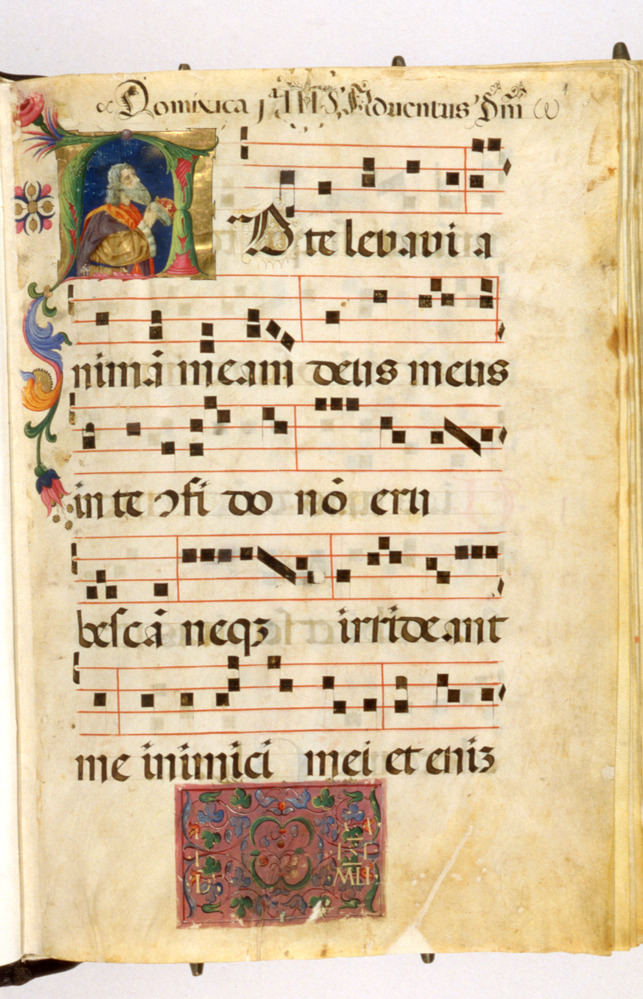 Dominica j Aduentus Dñi
AD te leuaui a
nimā meam deus meus
in te ꝯfi do nō eru
bescā neqꝫ irrideant
me inimici mei et eniꝫ